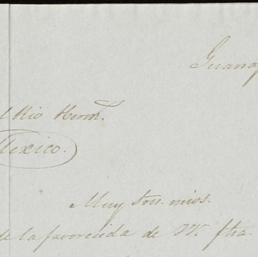 Guana
l Rio Herm.
Mexico.
Muy Sres. mios.
de la favorecida de VV. fha